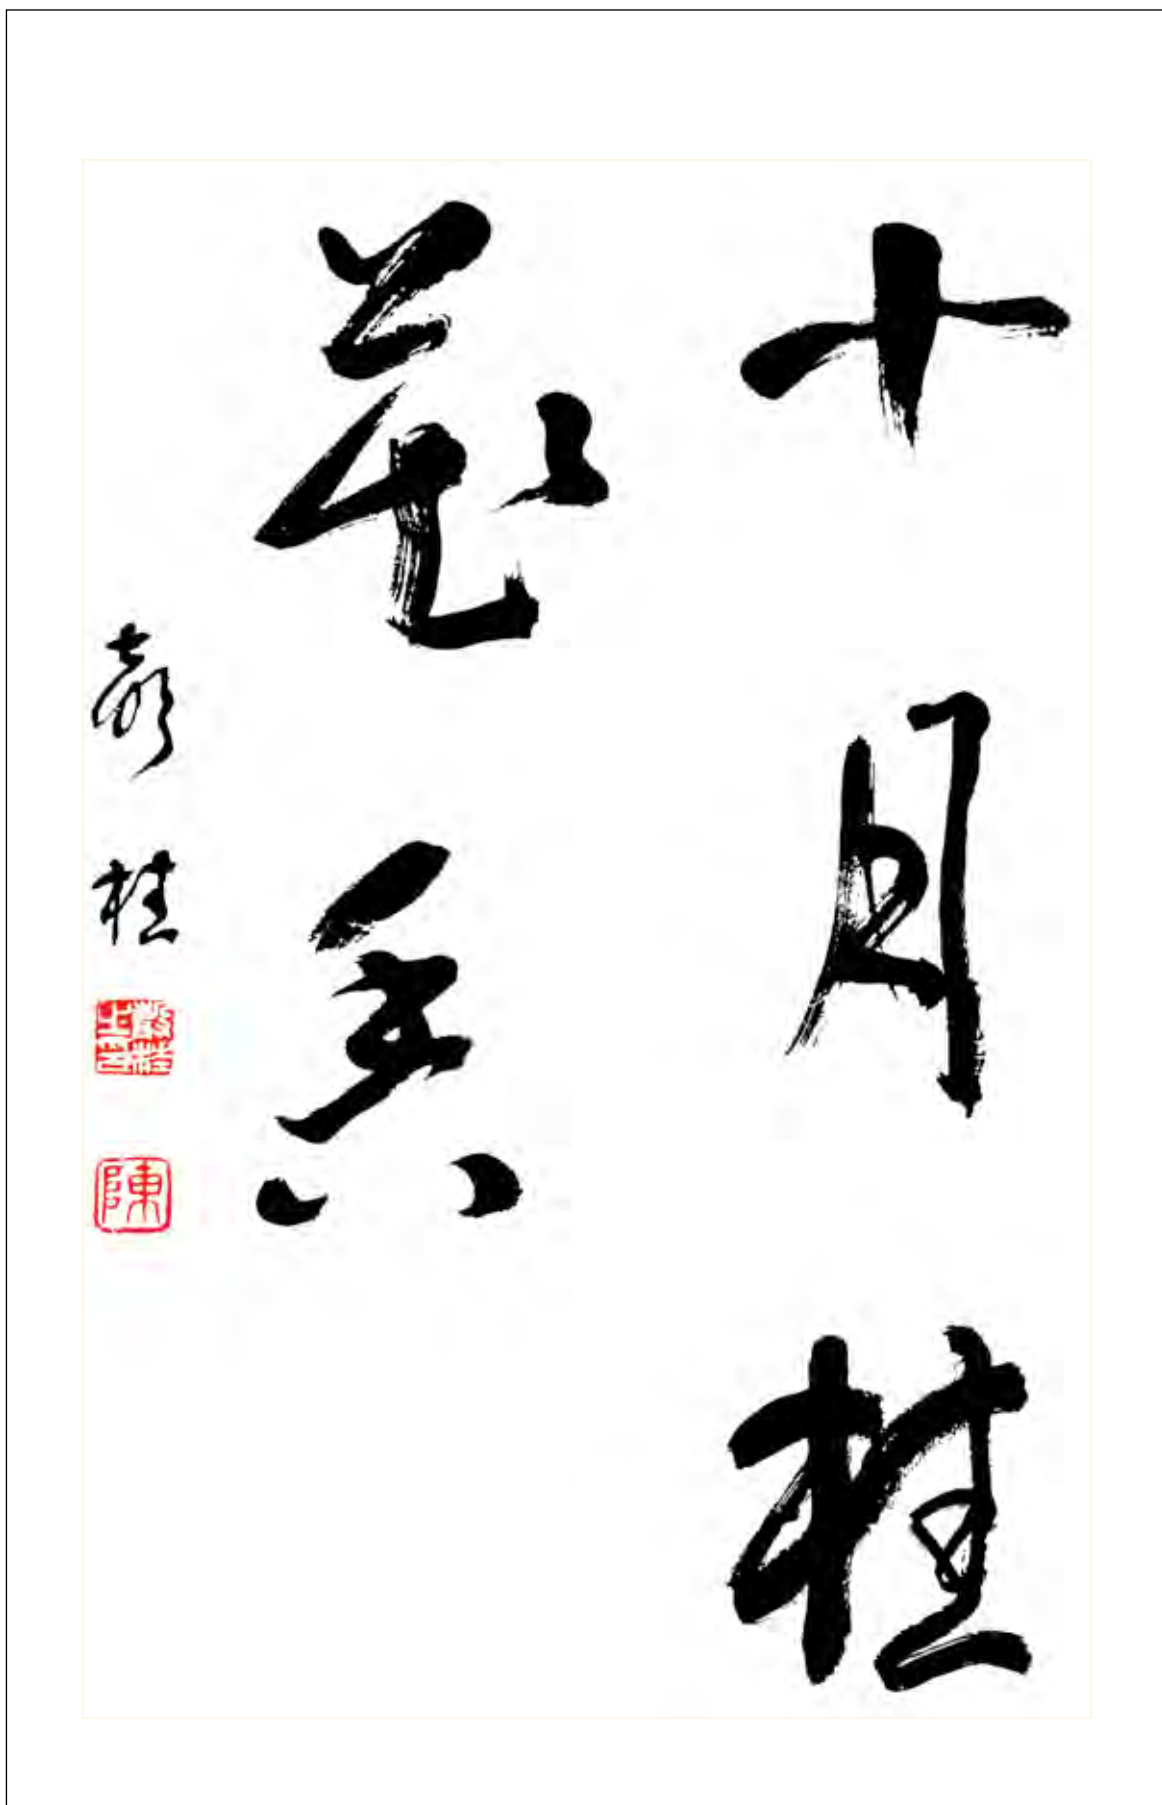 十月桂
花香
桂
陳